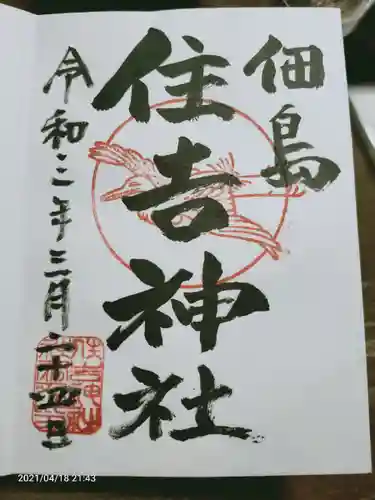 佃島
住吉神社
令和三年三月二十四日
2021/04/18 21:43